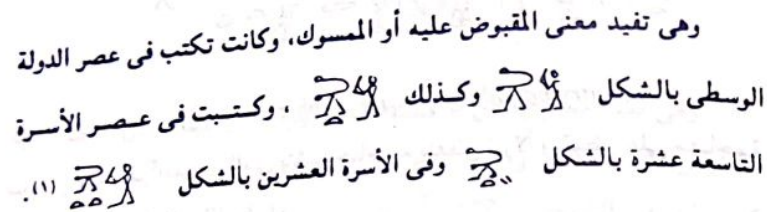 وهى تفيد معنى المقبوض عليه أو الممسوك، وكانت تكتب فى عصر الدولة
الوسطى بالشكل وكذلك ، وكتبت فى عصر الأسرة
التاسعة عشرة بالشكل وفى الأسرة العشرين بالشكل (١).